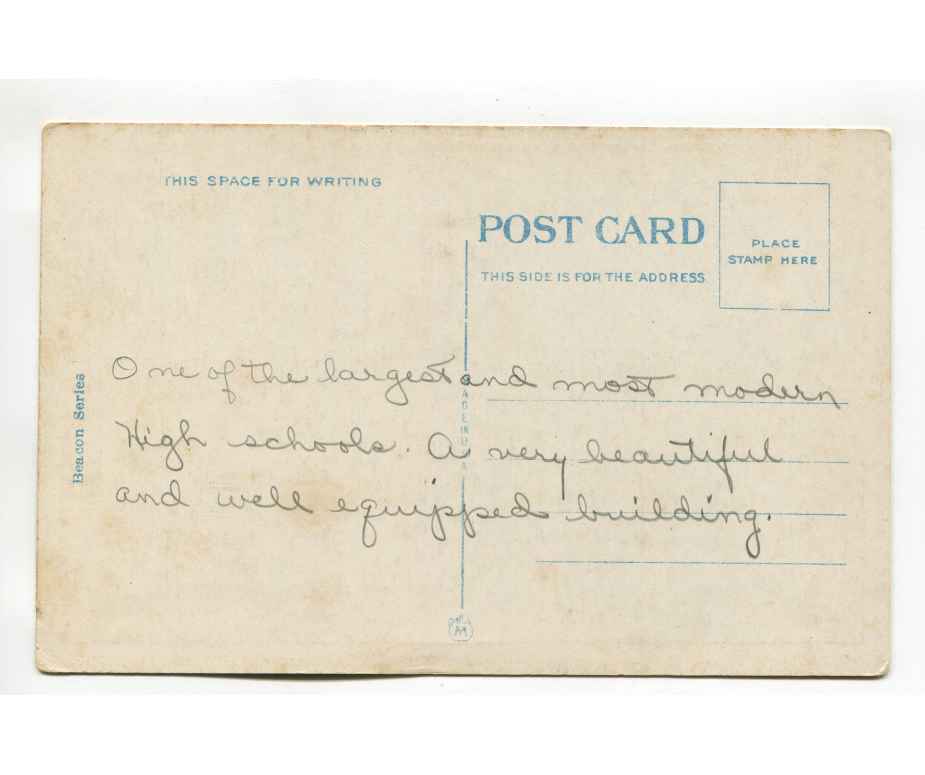 THIS SPACE FOR WRITING
POST CARD
THIS SIDE IS FOR THE ADDRESS
PLACE
STAMP HERE
Beacon Series
One of the largest and most modern
High schools. A very beautiful
and well equipped building.